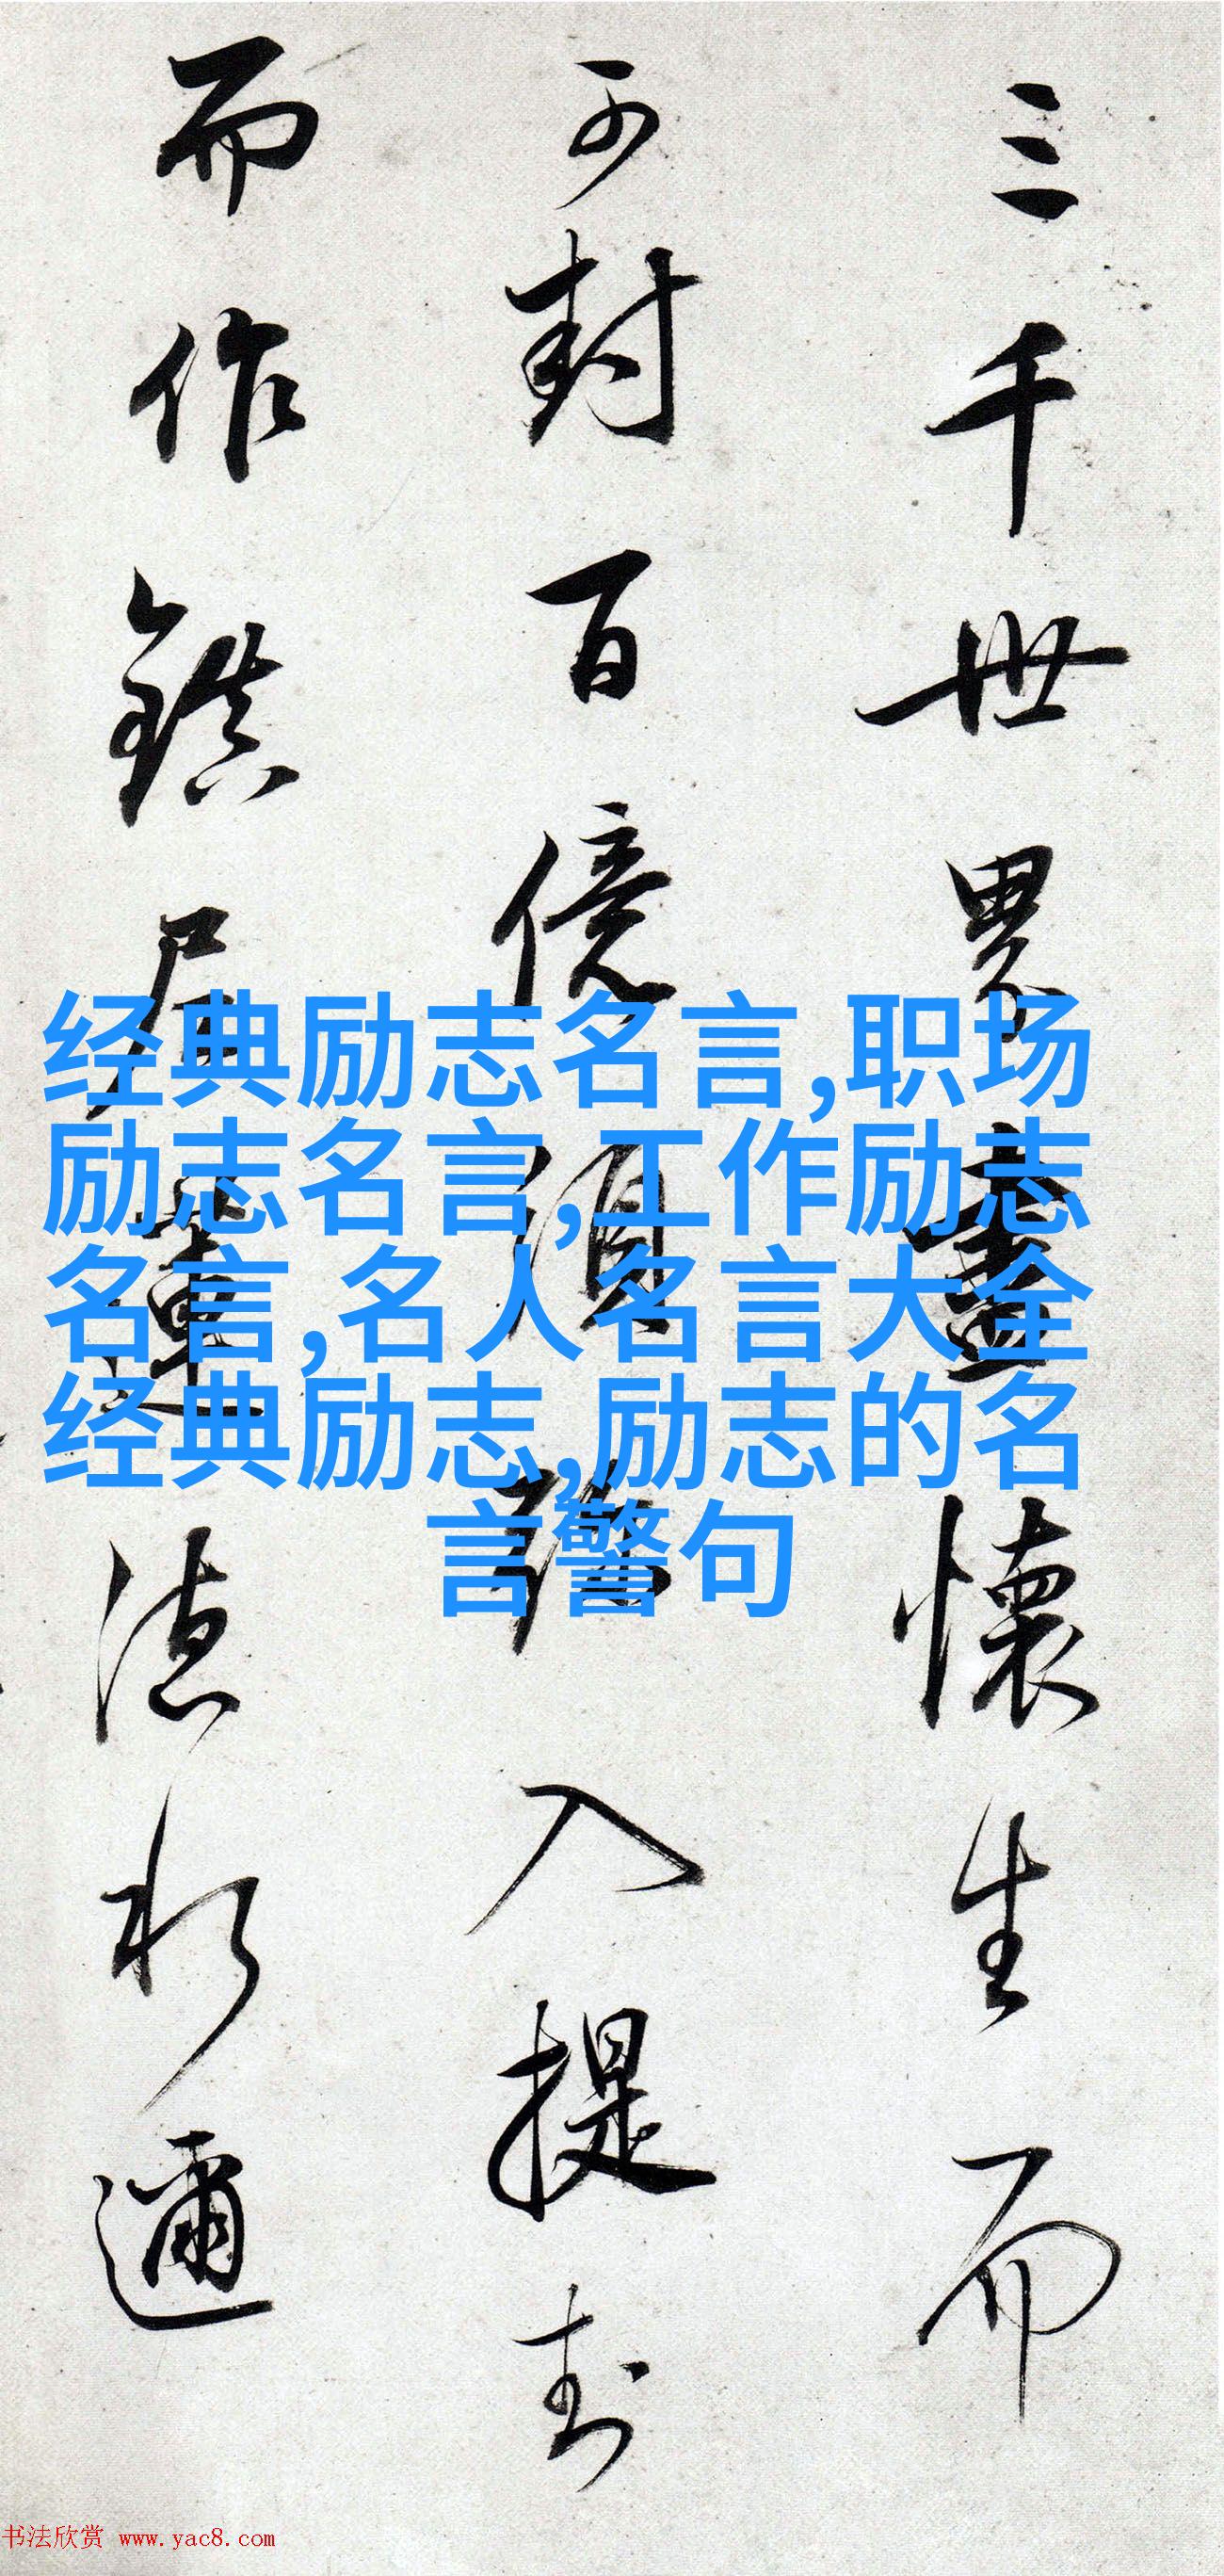 三千世界盡懷生而
可封百億須彌入提封
而作鎮居蓮德水邇
经典励志名言,职场
励志名言,工作励志
名言,名人名言大全
经典励志,励志的名
言警句
书法欣赏 www.yac8.com